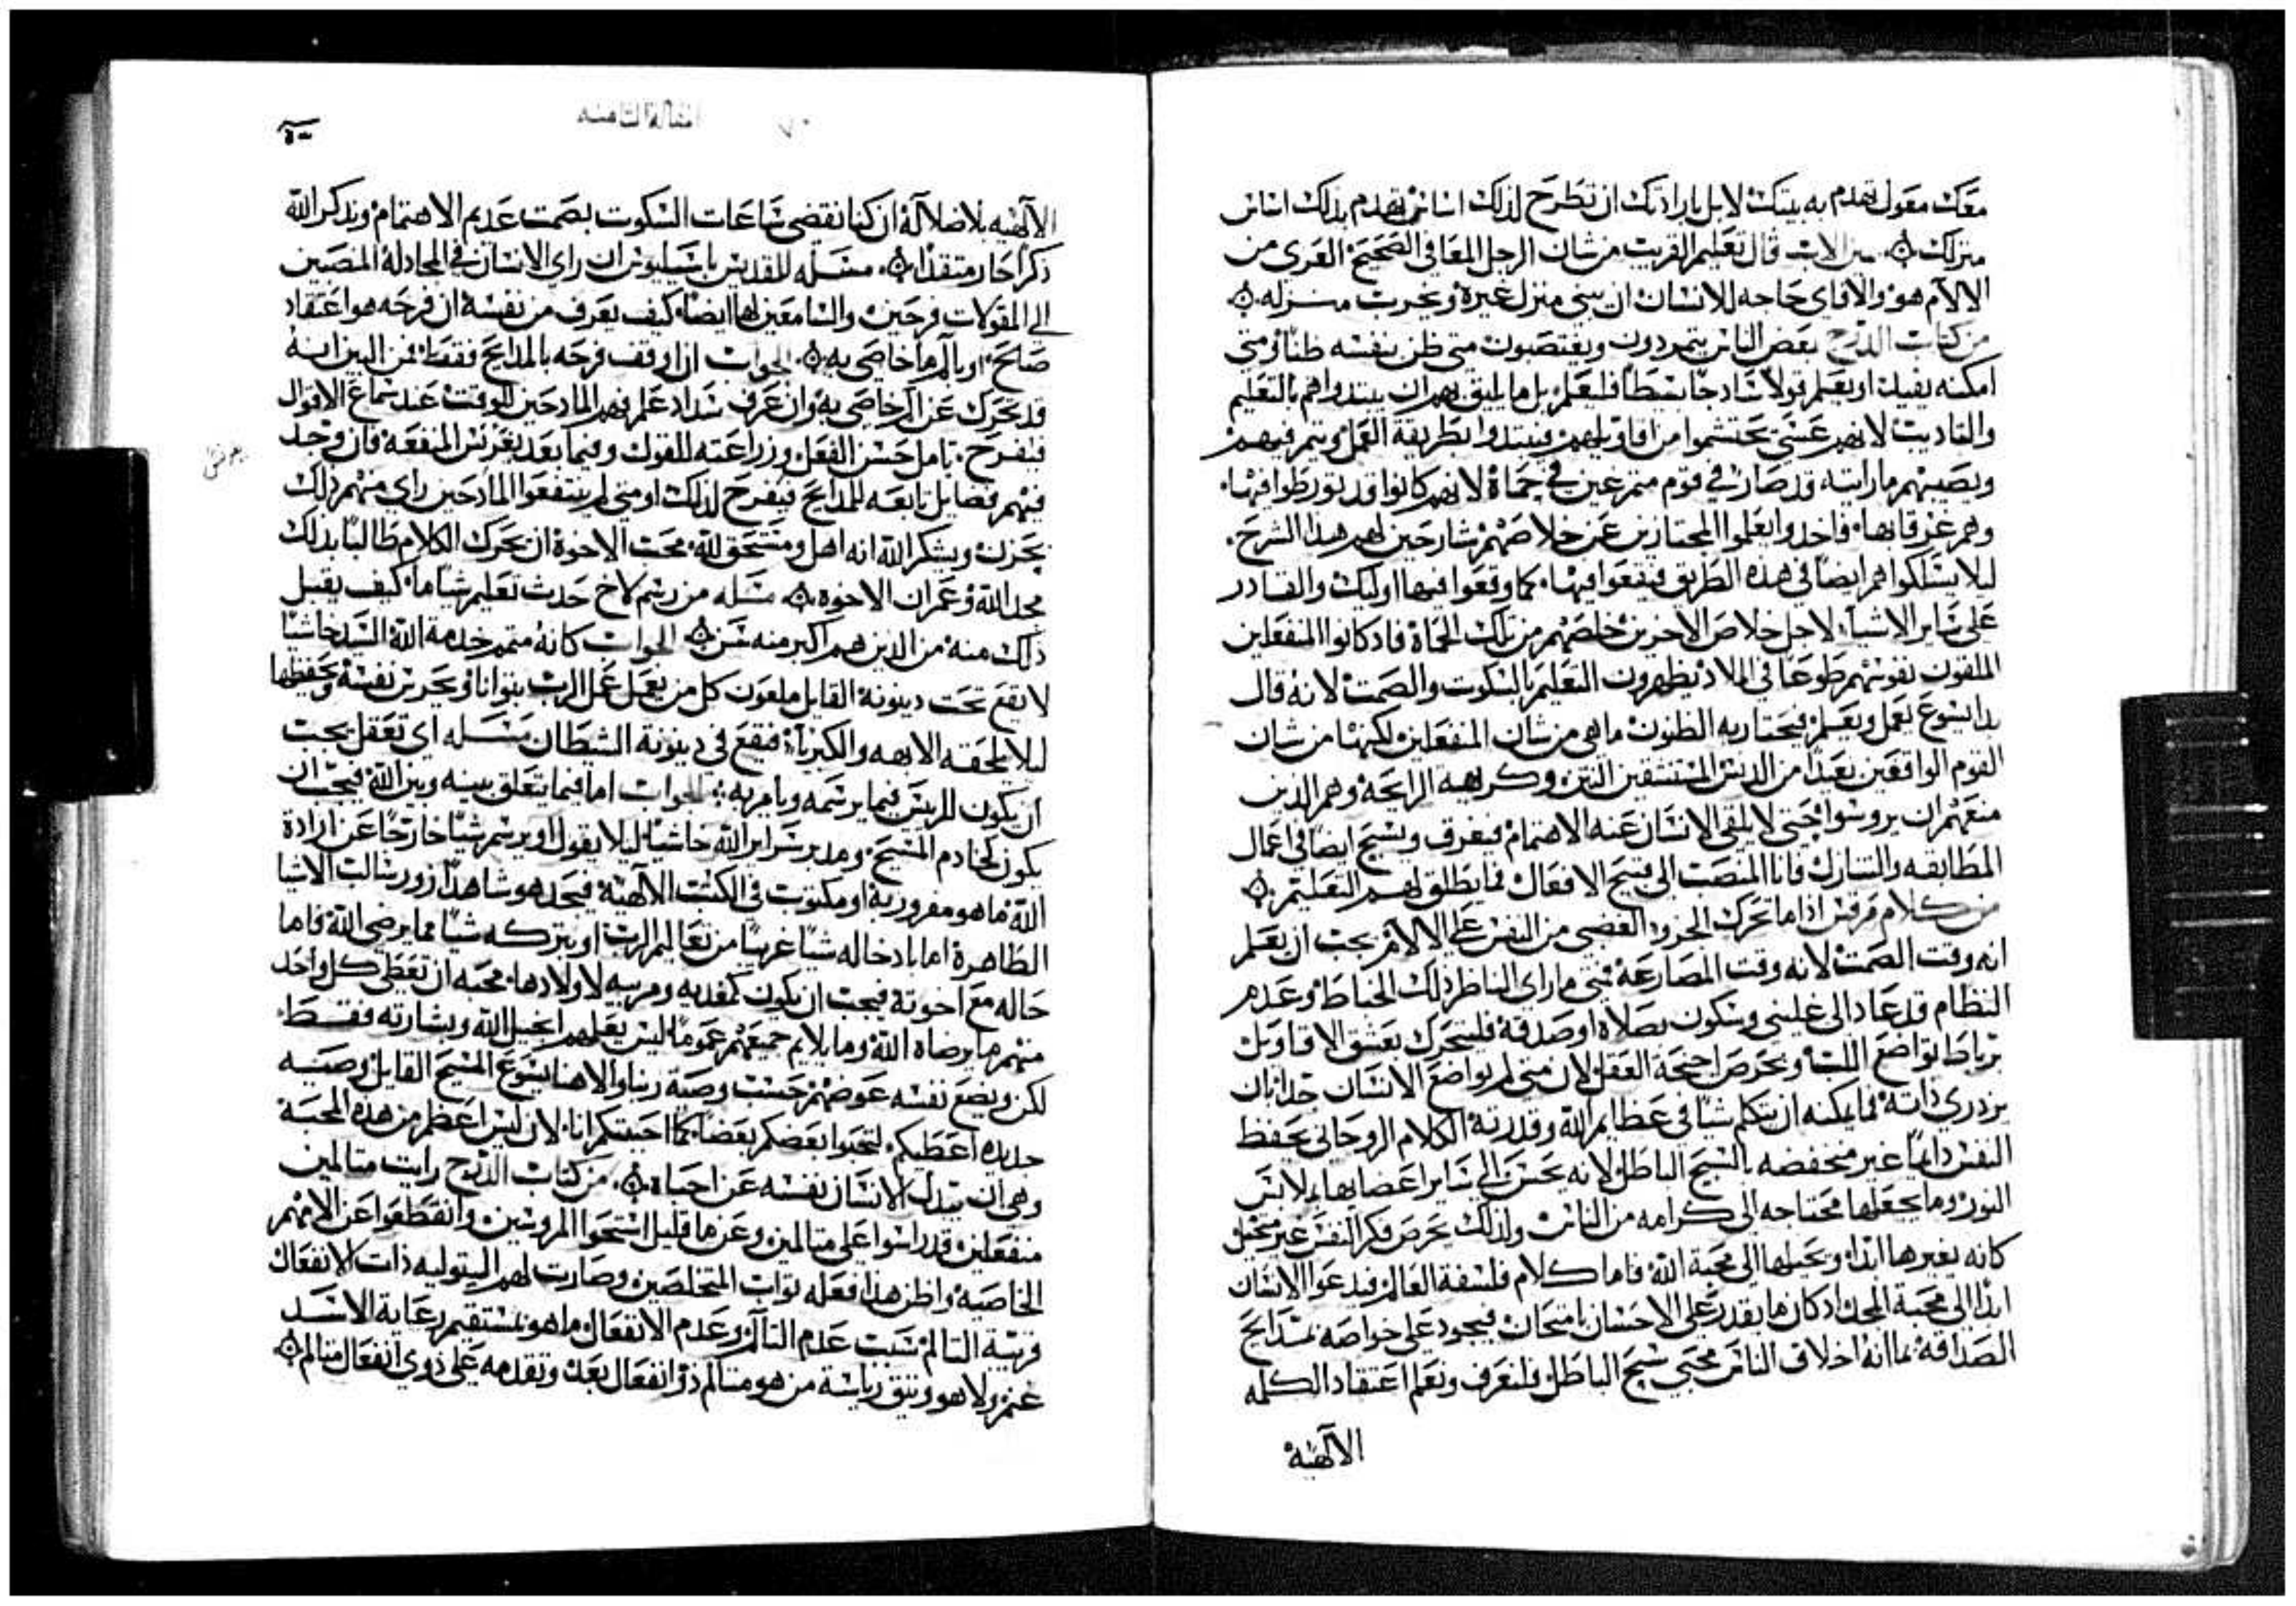 معك معول تهدم به بيتك لا بل بارادتك ان تطرح لذلك اساس تهدم بذلك اساس
منزلك قال تعليم القريب من شان الرجل المعافى الصحيح العرى من
الالام هو والا فاى حاجه للانسان ان يبنى منزل غيره ويخرب منزله
من كتاب الدرج بعض الناس يتمردون ويغتصبون متى ظن بنفسه ظنا ومتى
امكنه يفيد او يعلم قولا سادجا بسيطا فليعلم بل ما يليق بهم ان يبتدوا هم بالتعليم
والتاديب لانهم عسى يحتشموا من اقاويلهم فيبتدوا بطريقة العمل ويتم فيهم
ويصيبهم ما رايته قد صار في قوم متمرغين في حماة لانهم كانوا قد تورطوا فيها
وهم غرقا بها فاخدوا يعلموا المجتازين عن خلاصهم شارحين لهم هدا الشرح
ليلا يسلكوا هم ايضا في هذه الطريق فيقعوا فيها كما وقعوا فيها اوليك والقادر
على ساير الاشيا لاجل خلاص الاخرين خلصهم من تلك الحماة فاد كانوا المنفعلين
الملقون نفوسهم طوعا في الملاد يظهرون التعليم بالسكوت والصمت لانه قال
بدا يسوع يعمل ويعلم الظنون ما هى من شان المنفعلين لكنها من شان
القوم الواقفين بعيدا من الدنس المستنشقين النتن وكراهية الرايحة وهم الدين
منعهم ان يروسوا حتى لا يلقى الانسان عنه الاهتمام فيغرق ويسبح ايضا في اعمال
المطابقه والتنازل فانا المنصب الى قبيح الافعال فما يطلق لهم التعليم
من كلام مرقس اذا ما تحرك الجزو الغضبى من النفس على الالام يجب ان يعلم
انه وقت الصمت لانه وقت المصارعة فمتى ما راى الناظر ذلك الخباط وعدم
النظام قد عاد الى وسكون بصلاة او صدقة فليتحرك بعشق الاقاويل
برباط تواضع اللب ويحرص اجنحة العقل لان متى لم يتواضع الانسان جدا بان
يزدرى ذاته فما يمكنه ان يتكلم شيا في عظايم الله وقدرته الكلام الروحانى يحفظ
النفس دايما غير منخفضه بالسبح الباطل لانه يحسن الى ساير اعضايها بملابس
النور وما يجعلها محتاجه الى كرامه من الناس ولذلك يحرص فكر النفس غير متخيل
كانه يغيرها ابدا ويحيلها الى محبة الله فاما كلام فلسفة العالم فيدعوا الانسان
ابدا الى محبة المجد اد كان ما يقدر على الاحسان بامتحان فيجود على خواصه بمدايح
الصداقه بما انه اختلاق الناس محبى سبح الباطل فلنعرف ونعلم اعتقاد الكلمه
الالهية
المقالة الثامنه
الالهيه بلا ضلالة ان كنا نقضى ساعات السكوت بصمت عديم الاهتمام وبذكر الله
ذكرا حار متقدا مسله للقديس باسيليوس ان راى الانسان في المجادلة المنصبين
الى المقولات فرحين والسامعين لها ايضا كيف يعرف من نفسه ان فرحه هو اعتقاد
صالح او بالم ما خاص به الجواب ان اوقف فرحه بالمدايح فقط فمن البين انه
قد تحرك عن الم خاصى به وان عرف سداد علم فهم المادحين للوقت عند سماع الاقوال
فيفرح تامل حسن الفعل وزراعته للقول وفيما بعد بغرس المنفعة فان وجد
فيهم فضايل تابعه للمدايح فيفرح لذلك او متى لم ينتفعوا المادحين راى منهم ذلك
يحزن ويشكر الله انه اهل ومستحق لله محب الاخوة ان يحرك الكلام طالبا بذلك
مجد الله وعمران الاخوه مسله من رسم لاخ حدث تعليم شيا ما كيف يقبل
ذلك منه من الذين هم اكبر منه سن الجواب كانه متمم خدمة الله السيد خاشيا
لا يقع تحت دينونة القايل ملعون كل من يعمل عمل الرب بتوانا ويحرس نفسه ويحفظها
ليلا تلحقه الابهه والكبريا فيقع في دينونة الشيطان مسله اى تعقل يجب
ان يكون للريس فيما يرسمه ويامر به الجواب اما فيما يتعلق بينه وبين الله فيجب ان
يكون كخادم المسيح ومدبر سراير الله خاشيا ليلا يقول او يرسم شيا خارجا عن ارادة
الله ما هو مقرور به او مكتوب في الكتب الالهية فيجد هو شاهدا زور سالب الاشيا
الطاهرة اما بادخاله شيا غريبا من تعاليم الرب او بتركه شيا مما يرضى الله فاما
حاله مع اخوته فيجب ان يكون كمغديه ومربيه لاولادها محبه ان تعطى كل واحد
منهم ما يرضاه الله وما يلايم جميعهم عموما ليس يعلمهم انجيل الله وبشارته فقط
لكن ويضع نفسه عوضهم حسب وصية ربنا والاهنا يسوع المسيح القايل وصيه
جديده اعطيكم لتحبوا بعضكم بعضا كما احببتكم انا لان ليس اعظم من هذه المحبة
وهى ان يبدل الانسان نفسه عن احباه من كتاب الدرج رايت متالمين
منفعلين قد راسوا على متالمين وعن ما قليل استحوا المروسين وانقطعوا عن الامهم
الخاصيه واظن هذا فعله ثواب المتخلصين وصارت لهم البتوليه ذات الانفعال
فربية التالم سبب عدم التالم وعدم الانفعال ما هو بمستقيم رعاية الاسد
غنم ولا هو وثيق رياسة من هو متالم ذو انفعال بعد وتقدمه على ذوى انفعال متالم